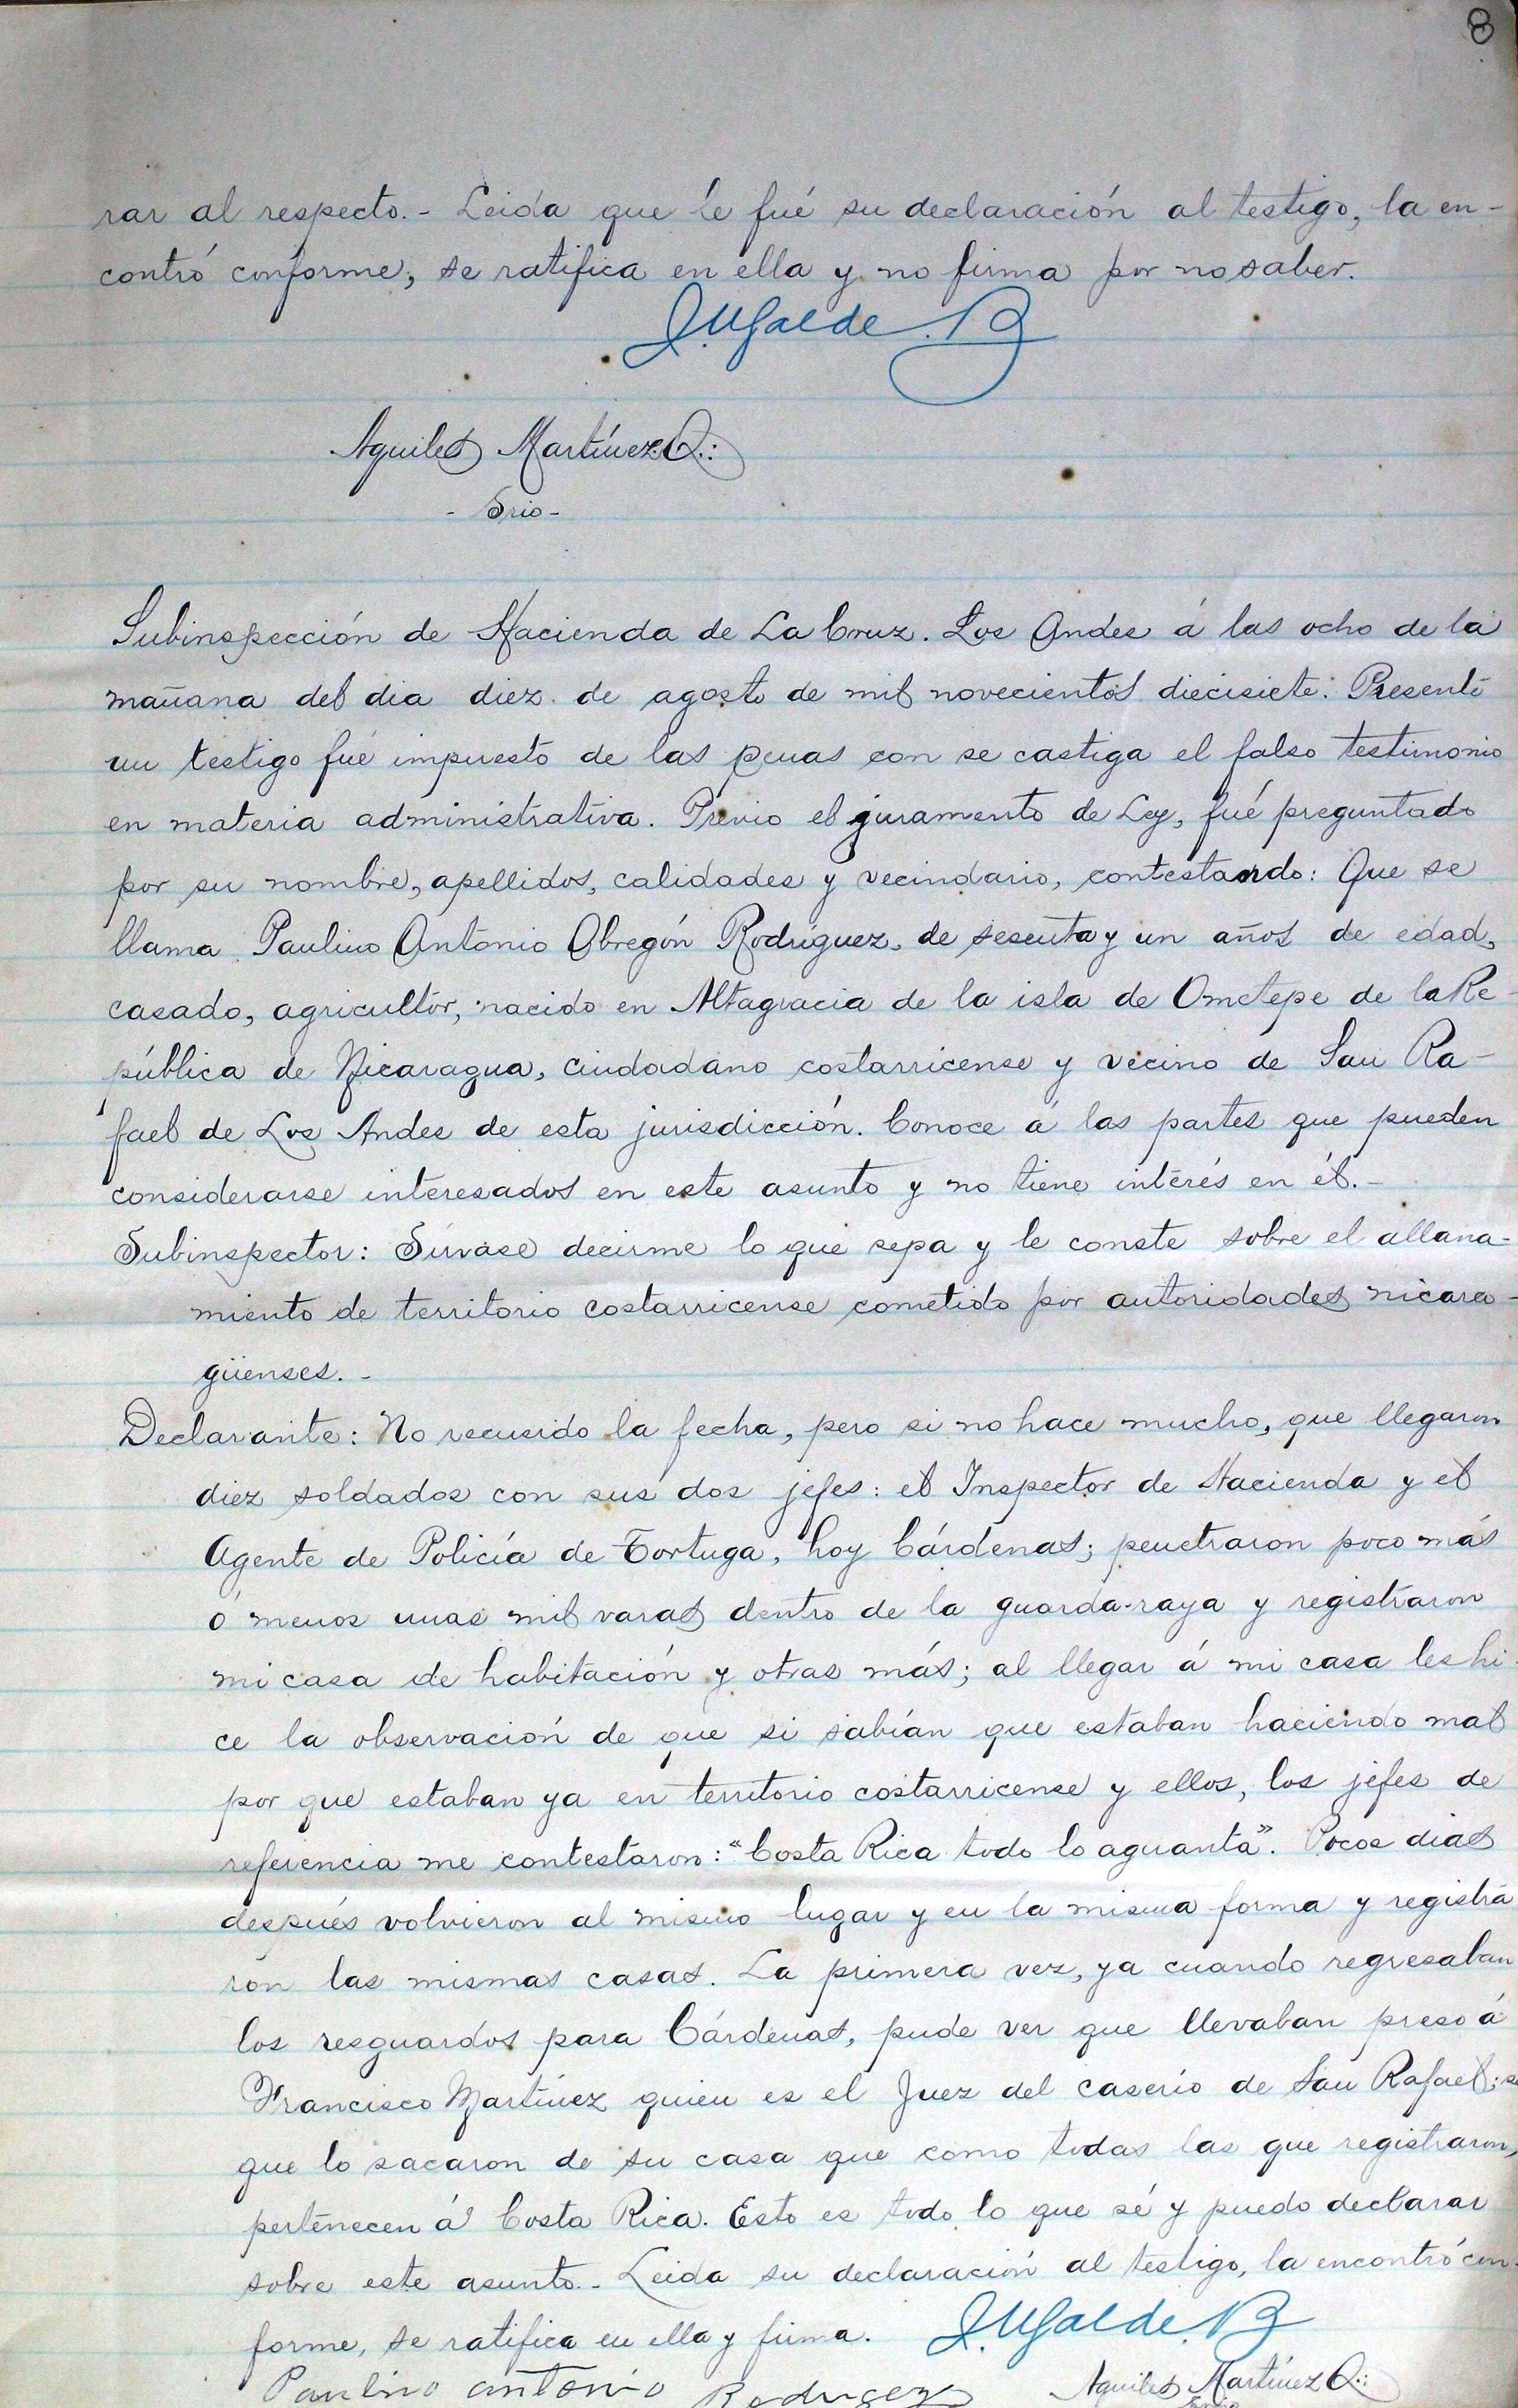 8
rar al respecto.- Leida que le fué su declaración al testigo, la en-
contró conforme, se ratifica en ella y no firma por no saber.
J. Ugalde. B
Aquiles Martínez Q.:
- Srio -
Subinspección de Hacienda de La Cruz. Los Andes á las ocho de la
mañana del dia diez de agosto de mil novecientos diecisiete. Presente
un testigo fué impuesto de las penas con se castiga el falso testimonio
en materia administrativa. Previo el juramento de Ley, fué preguntado
por su nombre, apellidos, calidades y vecindario, contestando: Que se
llama Paulino Antonio Obregón Rodríguez, de sesenta y un años de edad,
casado, agricultor, nacido en Altagracia de la isla de Ometepe de la Re-
pública de Nicaragua, ciudadano costarricense y vecino de San Ra-
fael de Los Andes de esta jurisdicción. Conoce á las partes que pueden
considerarse interesados en este asunto y no tiene interés en él.-
Subinspector: Sírvase decirme lo que sepa y le conste sobre el allana-
miento de territorio costarricense cometido por autoridades nicara-
güenses.-
Declarante: No recuerdo la fecha, pero si no hace mucho, que llegaron
diez soldados con sus dos jefes: el Inspector de Hacienda y el
Agente de Policía de Tortuga, hoy Cárdenas; penetraron poco más
ó menos unas mil varas dentro de la guarda-raya y registraron
mi casa de habitación y otras más; al llegar á mi casa les hi-
ce la observación de que si sabían que estaban haciendo mal
por que estaban ya en territorio costarricense y ellos, los jefes de
referencia me contestaron: "Costa Rica todo lo aguanta". Pocos dias
después volvieron al mismo lugar y en la misma forma y registra
ron las mismas casas. La primera vez, ya cuando regresaban
los resguardos para Cárdenas, pude ver que llevaban preso á
Francisco Martínez quien es el Juez del caserío de San Rafael;
que lo sacaron de su casa que como todas las que registraron,
pertenecen á Costa Rica. Esto es todo lo que sé y puedo declarar
sobre este asunto.- Leida su declaración al testigo, la encontró con-
forme, se ratifica en ella y firma. J. Ugalde. B
Paulino antonio Rodrugez Aquiles Martínez Q.:
Srio